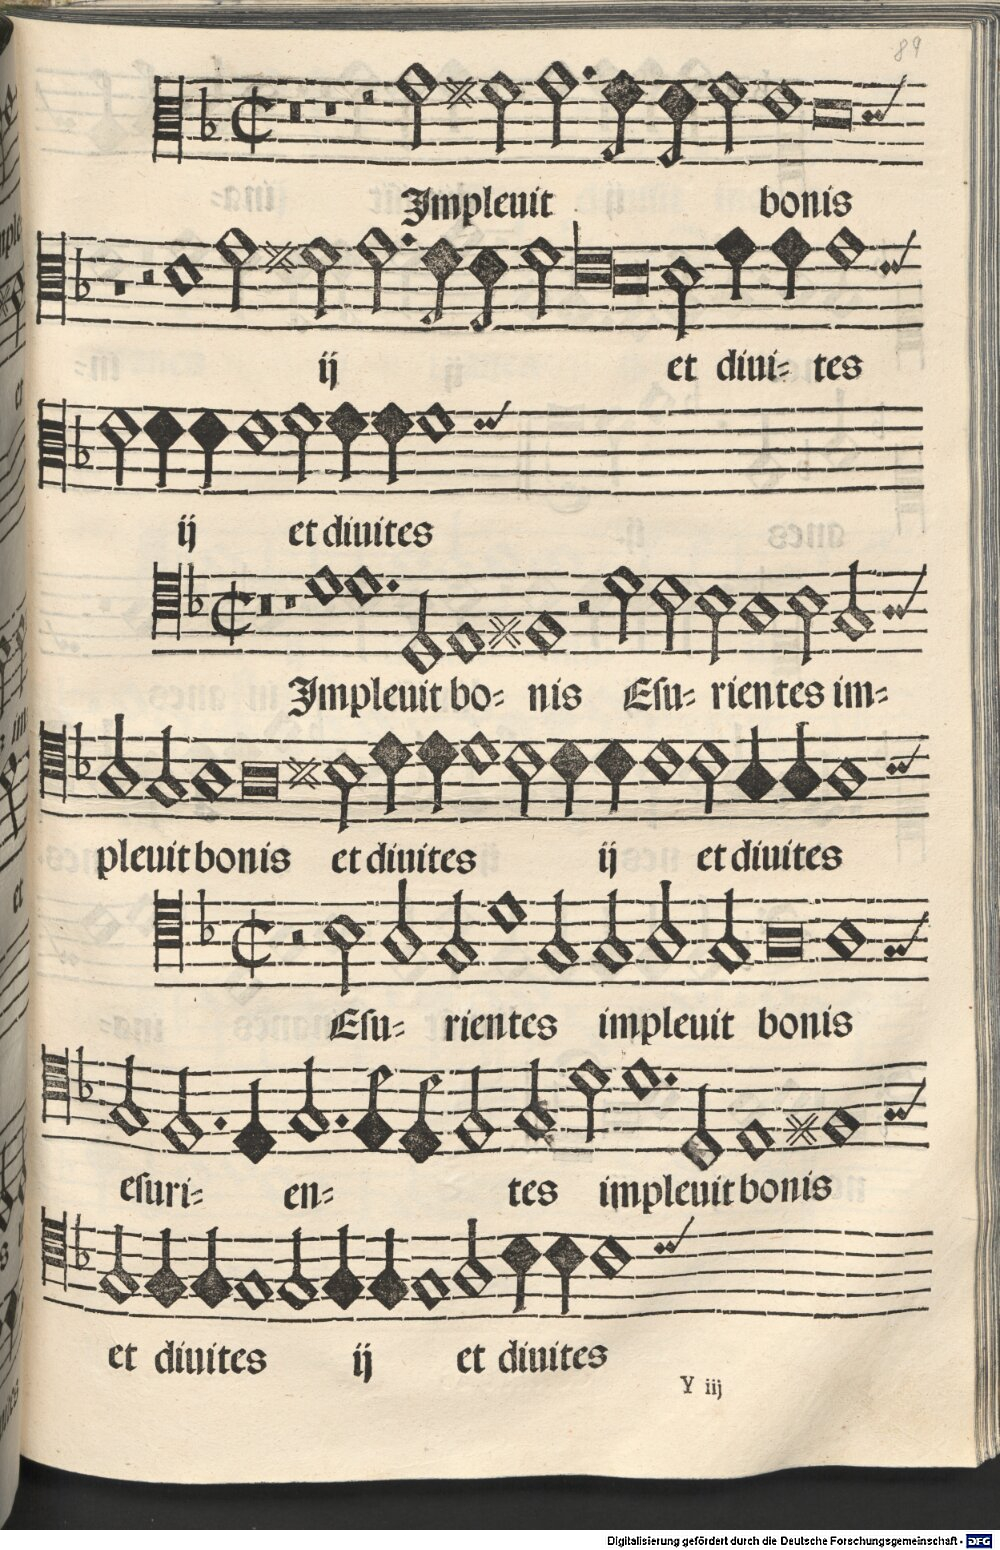 89
Impleuit bonis
ij et diui= tes
ij et diuites
Impleuit bo= nis Esu= rientes im=
pleuit bonis et diuites ij et diuites
Esu= rientes impleuit bonis
esuri= en= tes impleuit bonis
et diuites ij et diuites
Y iij
Digitalisierung gefördert durch die Deutsche Forschungsgemeinschaft - DFG